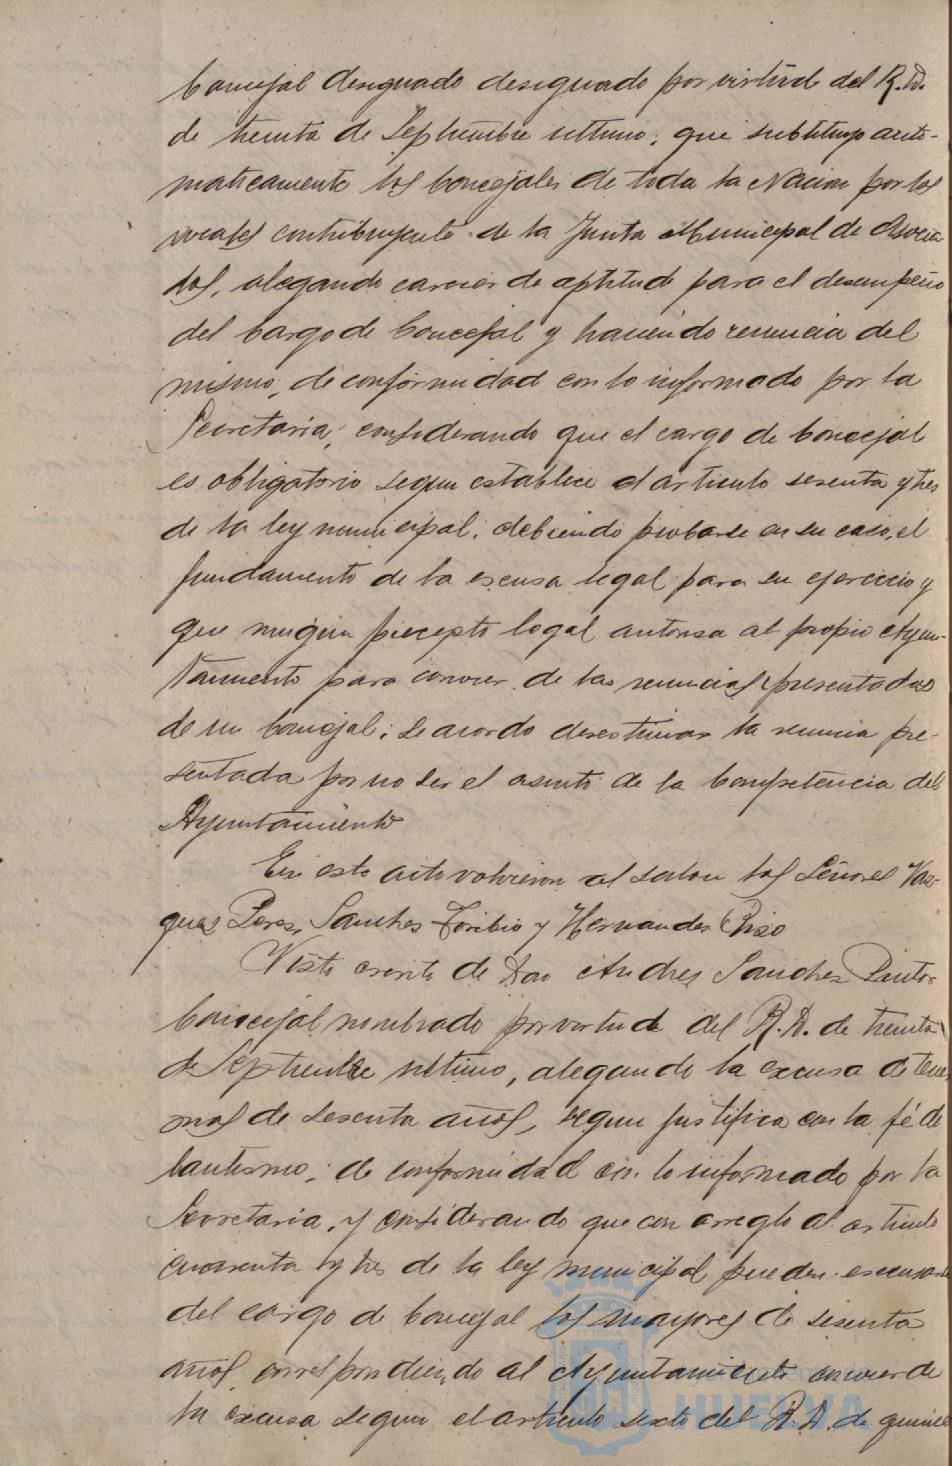 Concejal designado designado por virtud del R. D.
de treinta de Septiembre ultimo, que substituyo auto-
maticamente los Concejales de toda la Nacion por los
vocales contribuyente de la Junta Municipal de Asocia-
dos, alegando carecer de aptitud para el desempeño
del Cargo de Concejal y haciendo renuncia del
mismo, de conformidad con lo informado por la
Secretaria; considerando que el cargo de Concejal
es obligatorio segun establece el articulo sesenta y tres
de la ley municipal, debiendo probarse en su caso, el
fundamento de la escusa legal para su ejercicio y
que ningun precepto legal autorisa al propio Ayun-
tamiento para conocer de las renuncias presentadas
de un Concejal; se acordo desestimar la renuncia pre-
sentada por no ser el asunto de la Competencia del
Ayuntamiento
En este acto volvieron al salon los Señores Vaz-
quez Perez, Sanchez Toribio y Hernandez
Visto escrito de Don Andres Sanchez Pastor
Concejal nombrado por vertud del R. D. de treinta
de Septiembre ultimo, alegando la excusa de tener
mas de sesenta años, segun justifica con la fé de
bautismo, de conformidad con lo informado por la
Secretaria, y considerando que con arreglo al articulo
cuarenta y tres de la ley municipal pueden escusarse
del cargo de Concejal los mayores de sesenta
años, correspondiendo al Ayuntamiento conocer de
la excusa segun el articulo sexto del R. D. de quince
HUELVA